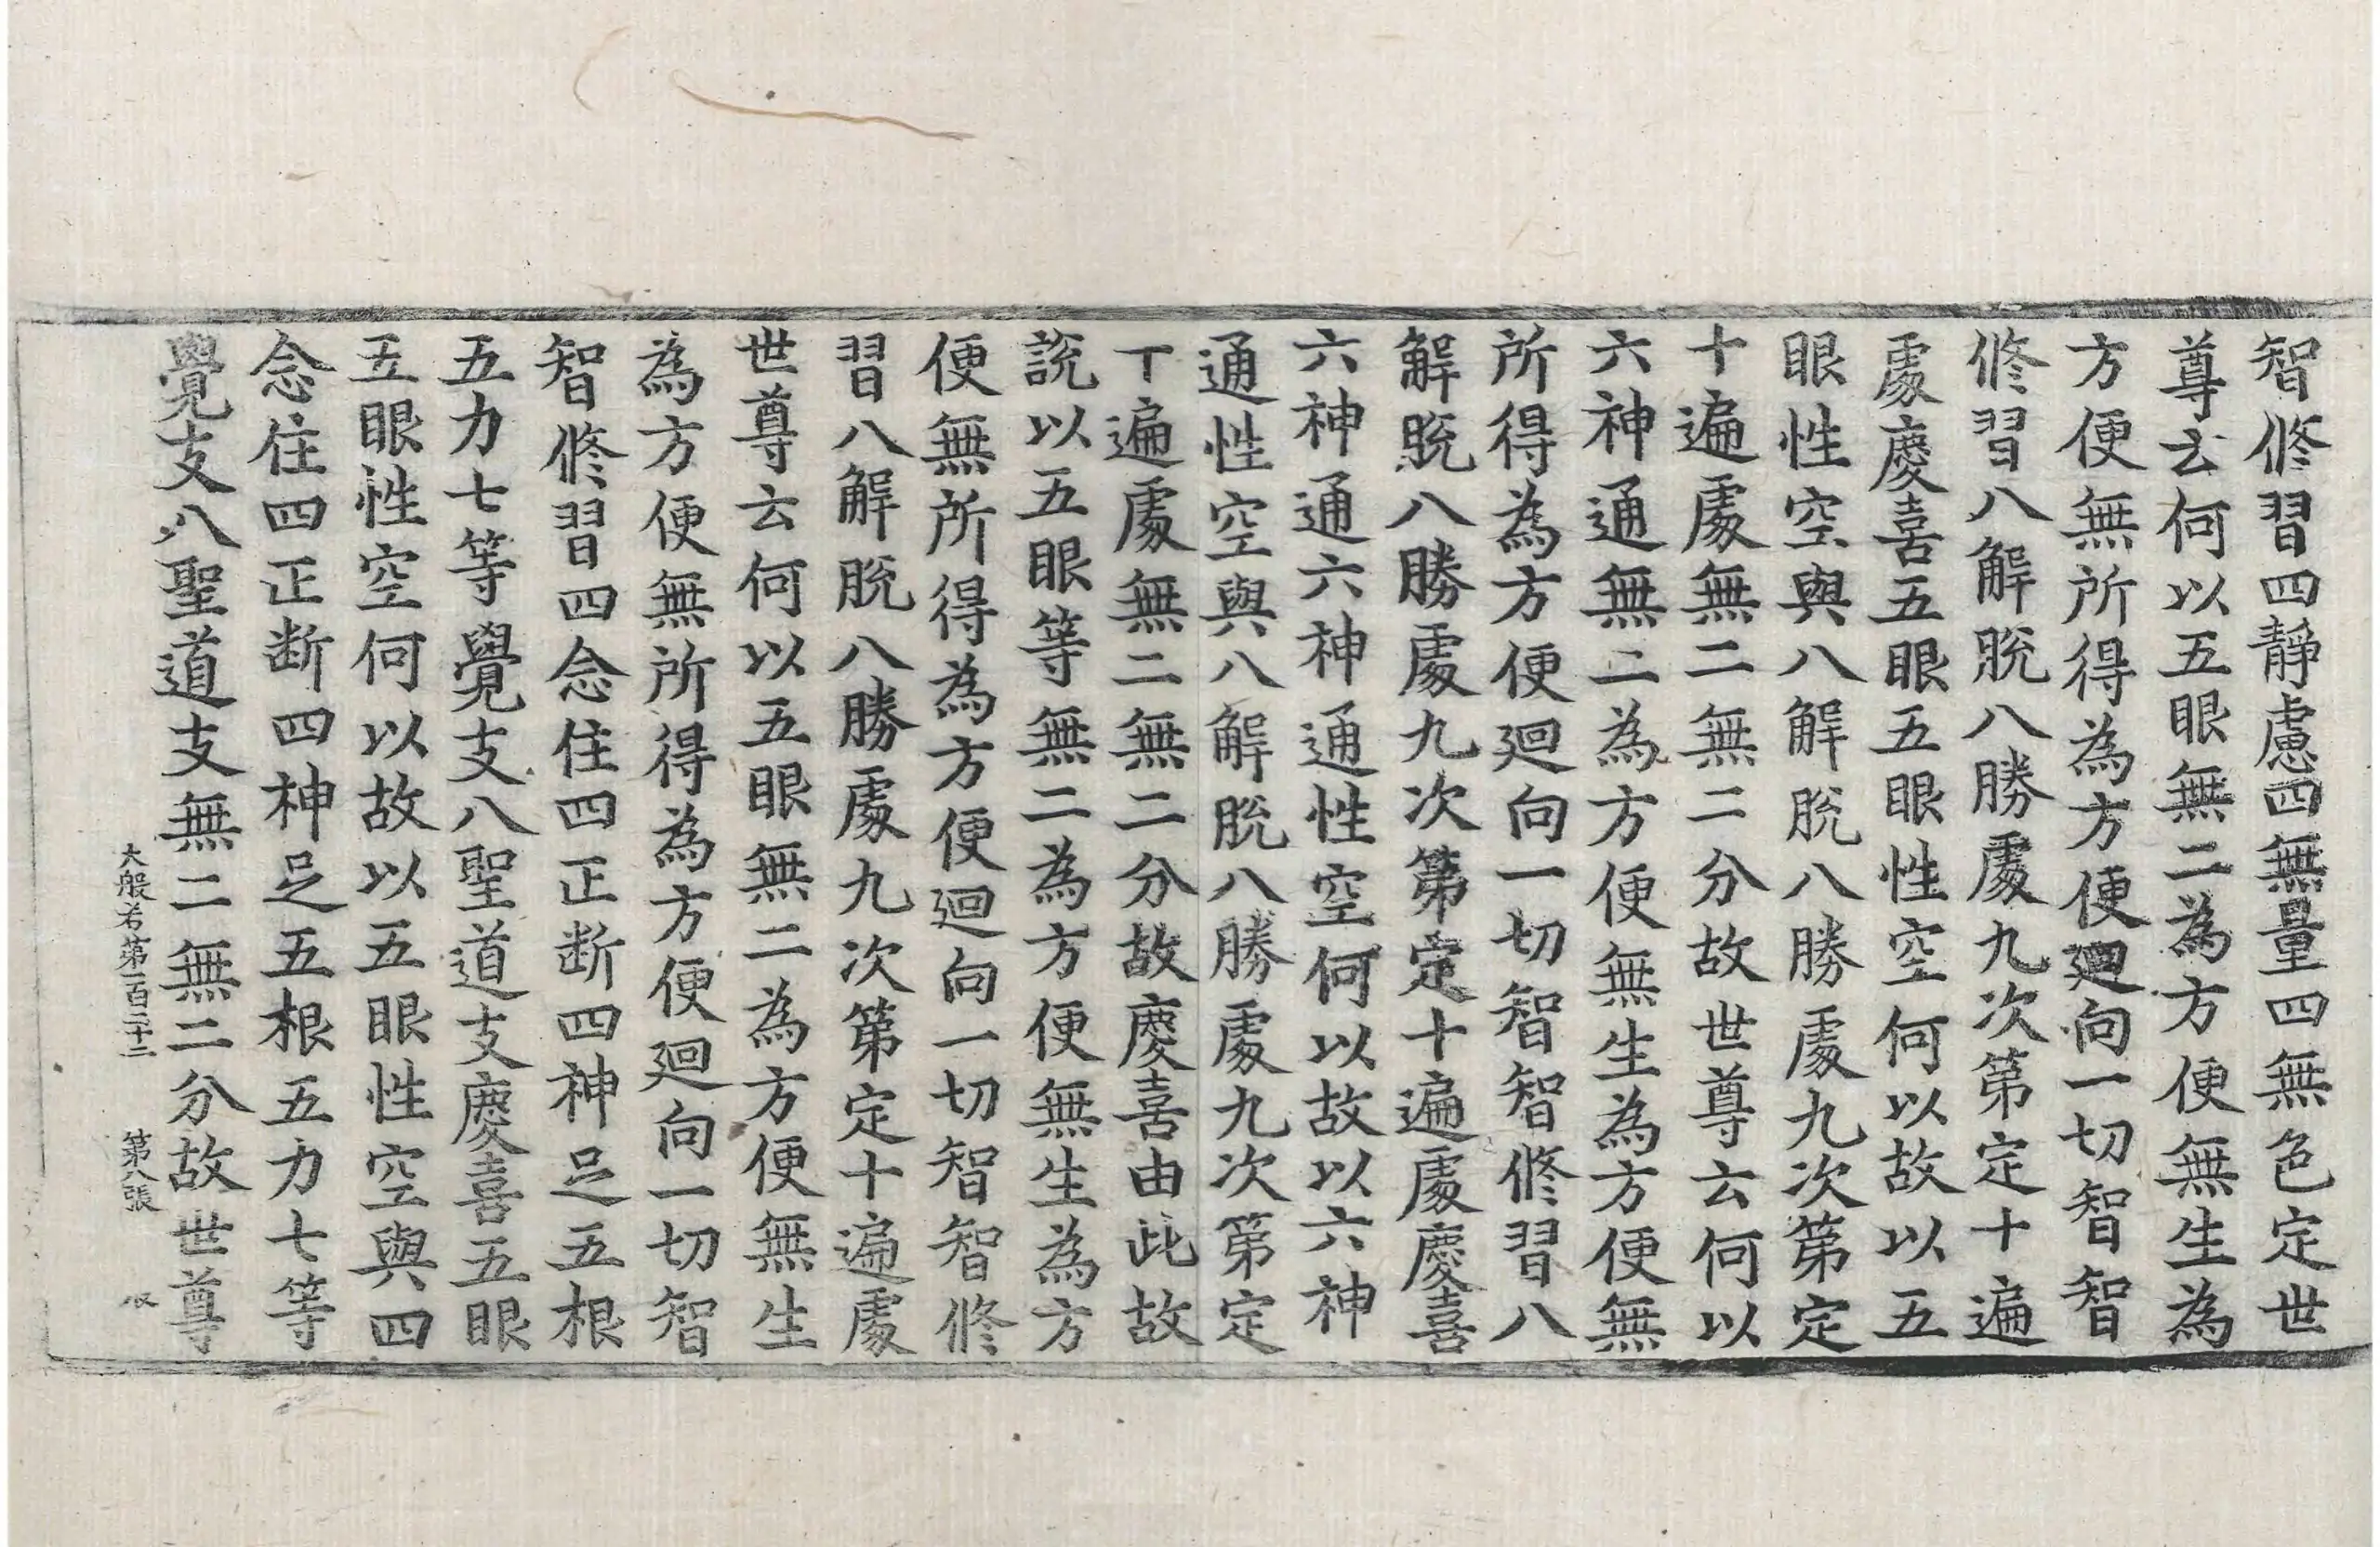 智修習四靜慮四無量四無色定世
尊云何以五眼無二為方便無生為
方便無所得為方便廻向一切智智
修習八解脫八勝處九次第定十遍
處慶喜五眼五眼性空何以故以五
眼性空與八解脫八勝處九次第定
十遍處無二無二分故世尊云何以
六神通無二為方便無生為方便無
所得為方便廻向一切智智修習八
解脫八勝處九次第定十遍處慶喜
六神通六神通性空何以故以六神
通性空與八解脫八勝處九次第定
丅遍處無二無二分故慶喜由此故
說以五眼等無二為方便無生為方
便無所得為方便廻向一切智智修
習八解脫八勝處九次第定十遍處
世尊云何以五眼無二為方便無生
為方便無所得為方便廻向一切智
智修習四念住四正断四神足五根
五力七等覺支八聖道支慶喜五眼
五眼性空何以故以五眼性空與四
念住四正断四神足五根五力七等
覺支八聖道支無二無二分故世尊
大般若第一百二十二 第八張